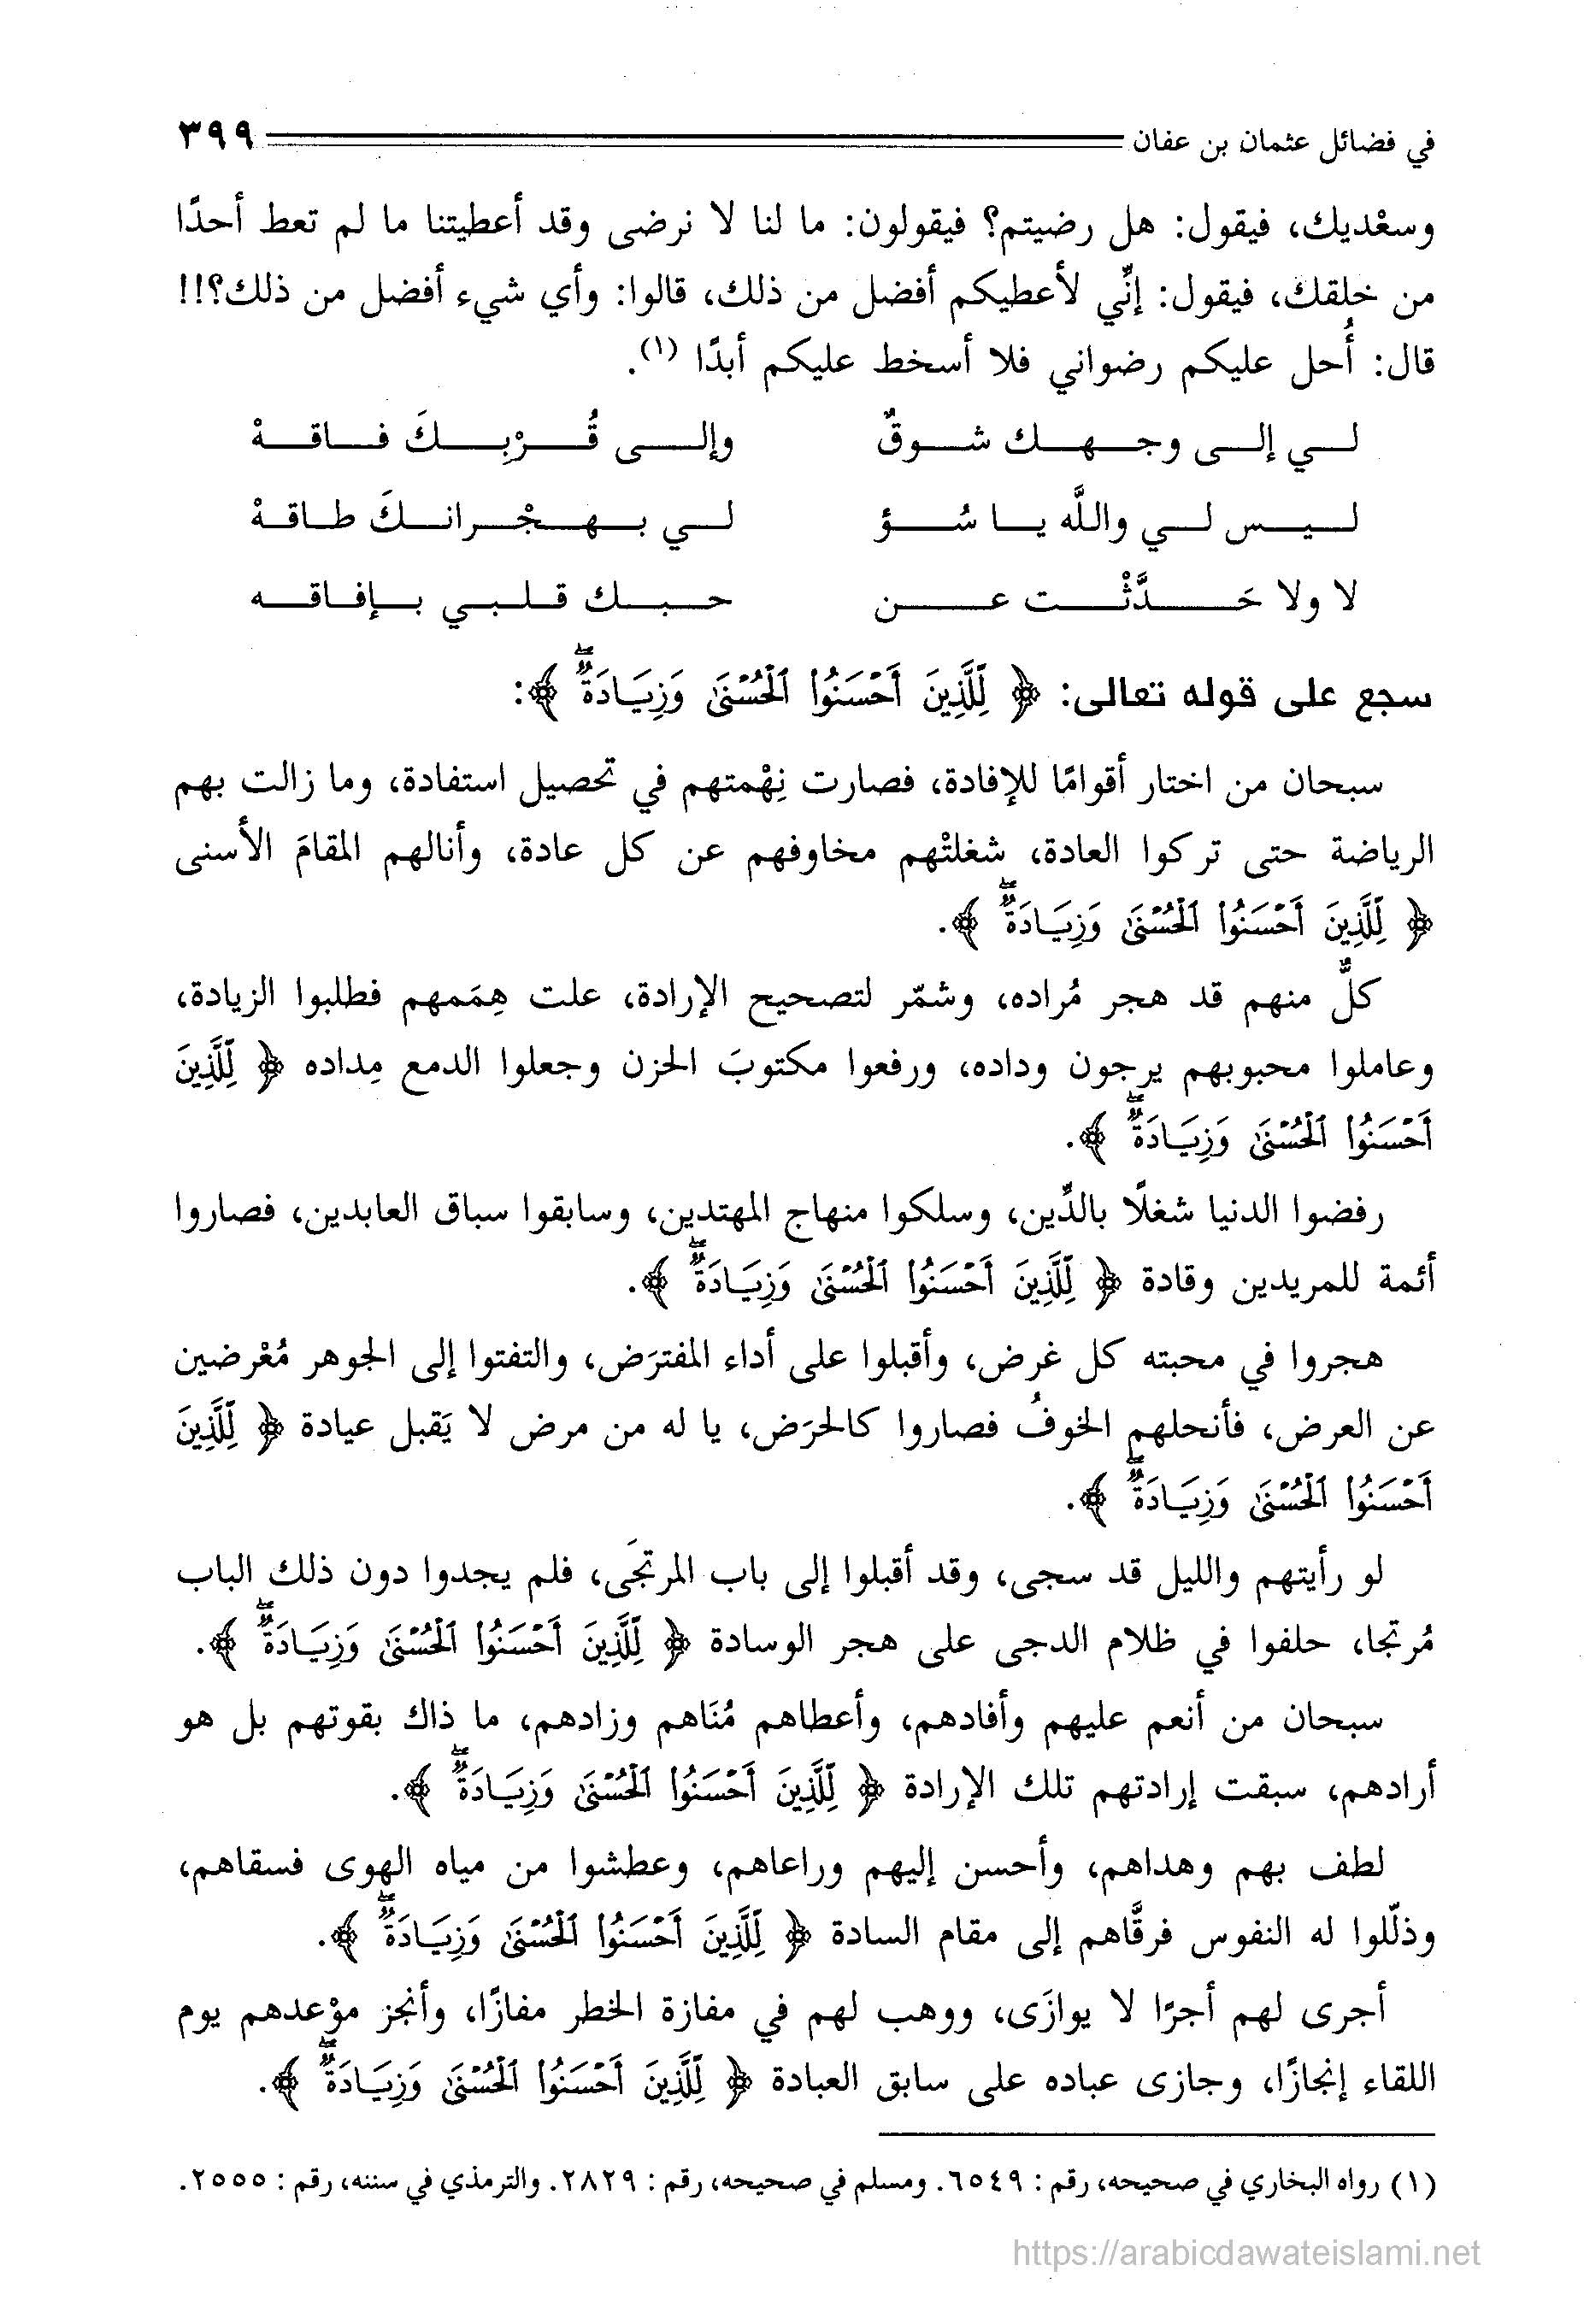 في فضائل عثمان بن عفان ٣٩٩
وسعْديك، فيقول: هل رضيتم؟ فيقولون: ما لنا لا نرضى وقد أعطيتنا ما لم تعط أحدًا
من خلقك، فيقول: إنِّي لأعطيكم أفضل من ذلك، قالوا: وأي شيء أفضل من ذلك؟!!
قال: أُحل عليكم رضواني فلا أسخط عليكم أبدًا (١).
لي إلى وجهك شوقٌ وإلى قُرْبِكَ فاقهْ
ليس لي واللَّه يا سُؤ لي بهجْرانكَ طاقهْ
لا ولا حَدَّثْت عن حبك قلبي بإفاقه
سجع على قوله تعالى: ﴿ لِّلَّذِينَ أَحۡسَنُواْ ٱلۡحُسۡنَىٰ وَزِيَادَةٞۖ ﴾:
سبحان من اختار أقوامًا للإفادة، فصارت نِهْمتهم في تحصيل استفادة، وما زالت بهم
الرياضة حتى تركوا العادة، شغلتْهم مخاوفهم عن كل عادة، وأنالهم المقامَ الأسنى
﴿ لِّلَّذِينَ أَحۡسَنُواْ ٱلۡحُسۡنَىٰ وَزِيَادَةٞۖ ﴾.
كلٌّ منهم قد هجر مُراده، وشمّر لتصحيح الإرادة، علت هِمَمهم فطلبوا الزيادة،
وعاملوا محبوبهم يرجون وداده، ورفعوا مكتوبَ الحزن وجعلوا الدمع مِداده ﴿ لِّلَّذِينَ
أَحۡسَنُواْ ٱلۡحُسۡنَىٰ وَزِيَادَةٞۖ ﴾.
رفضوا الدنيا شغلًا بالدِّين، وسلكوا منهاج المهتدين، وسابقوا سباق العابدين، فصاروا
أئمة للمريدين وقادة ﴿ لِّلَّذِينَ أَحۡسَنُواْ ٱلۡحُسۡنَىٰ وَزِيَادَةٞۖ ﴾.
هجروا في محبته كل غرض، وأقبلوا على أداء المفترَض، والتفتوا إلى الجوهر مُعْرضين
عن العرض، فأنحلهم الخوفُ فصاروا كالحرَض، يا له من مرض لا يَقبل عيادة ﴿ لِّلَّذِينَ
أَحۡسَنُواْ ٱلۡحُسۡنَىٰ وَزِيَادَةٞۖ ﴾.
لو رأيتهم والليل قد سجى، وقد أقبلوا إلى باب المرتجَى، فلم يجدوا دون ذلك الباب
مُرتجا، حلفوا في ظلام الدجى على هجر الوسادة ﴿ لِّلَّذِينَ أَحۡسَنُواْ ٱلۡحُسۡنَىٰ وَزِيَادَةٞۖ ﴾.
سبحان من أنعم عليهم وأفادهم، وأعطاهم مُنَاهم وزادهم، ما ذاك بقوتهم بل هو
أرادهم، سبقت إرادتهم تلك الإرادة ﴿ لِّلَّذِينَ أَحۡسَنُواْ ٱلۡحُسۡنَىٰ وَزِيَادَةٞۖ ﴾.
لطف بهم وهداهم، وأحسن إليهم وراعاهم، وعطشوا من مياه الهوى فسقاهم،
وذلّلوا له النفوس فرقَّاهم إلى مقام السادة ﴿ لِّلَّذِينَ أَحۡسَنُواْ ٱلۡحُسۡنَىٰ وَزِيَادَةٞۖ ﴾.
أجرى لهم أجرًا لا يوازَى، ووهب لهم في مفازة الخطر مفازًا، وأنجز موْعدهم يوم
اللقاء إنجازًا، وجازى عباده على سابق العبادة ﴿ لِّلَّذِينَ أَحۡسَنُواْ ٱلۡحُسۡنَىٰ وَزِيَادَةٞۖ ﴾.
(١) رواه البخاري في صحيحه، رقم : ٦٥٤٩. ومسلم في صحيحه، رقم : ٢٨٢٩. والترمذي في سننه، رقم : ٢٥٥٥.
https://arabicdawateislami.net